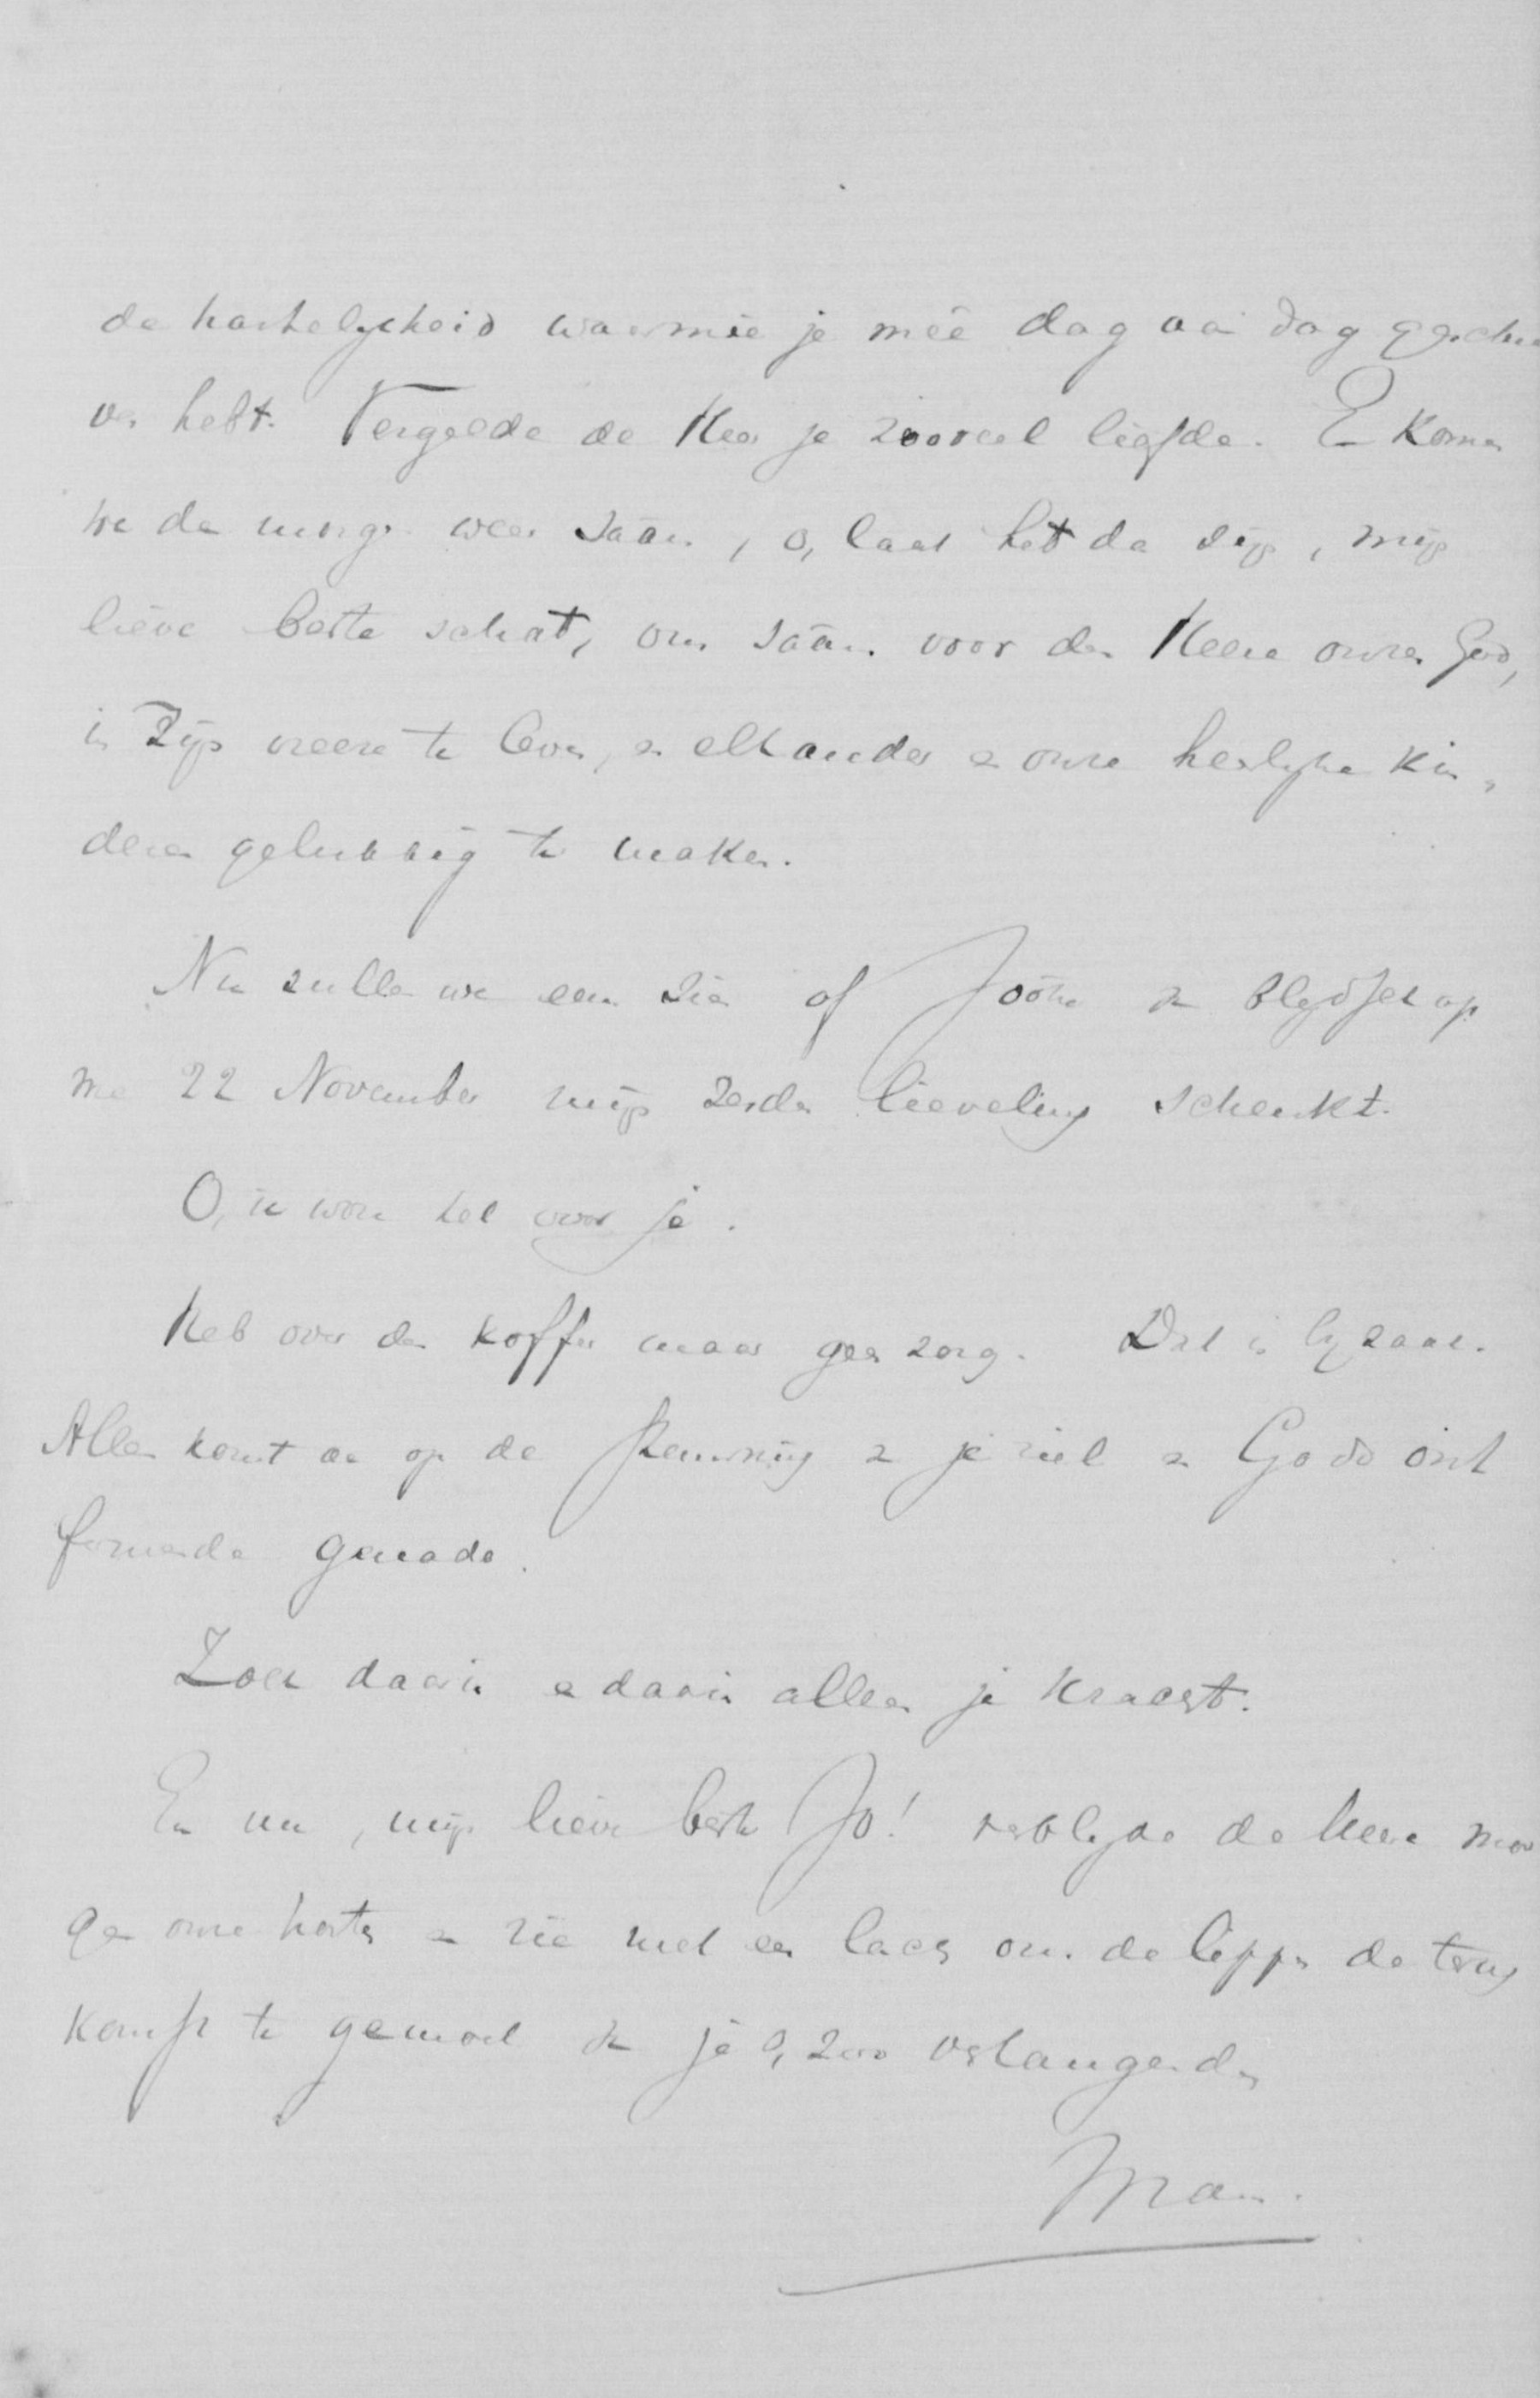 de hartelijkheid waarmée je meê dag aan dag geschre
ven hebt. Vergelde de Heer je zooveel liefde. En komen
we dan morgen weer saâm, o, laat het dan zijn, mijn
lieve beste schat, om saâm voor den Heere onzen God,
in Zijn vreeze te leven, en elkander en onze heerlijke kin,
deren gelukkig te maken.
Nu zullen we eens zien of die blijdschap
me 22 November mijn zesden lieveling schenkt.
O, ik wou het voor je.
Heb over den koffer maar geen zorg. Dat is bijzaak.
Alles komt aan op de stemming en je ziel en Gods ont
fermende genade.
Zoek daarin en daarin alleen je kracht.
En nu, mijn lieve beste Jo! verblijde de Heere mor
gen onze harten en zie met een lach om de lippen de terug
komst te gemoet die je o, zoo verlangenden
Man.